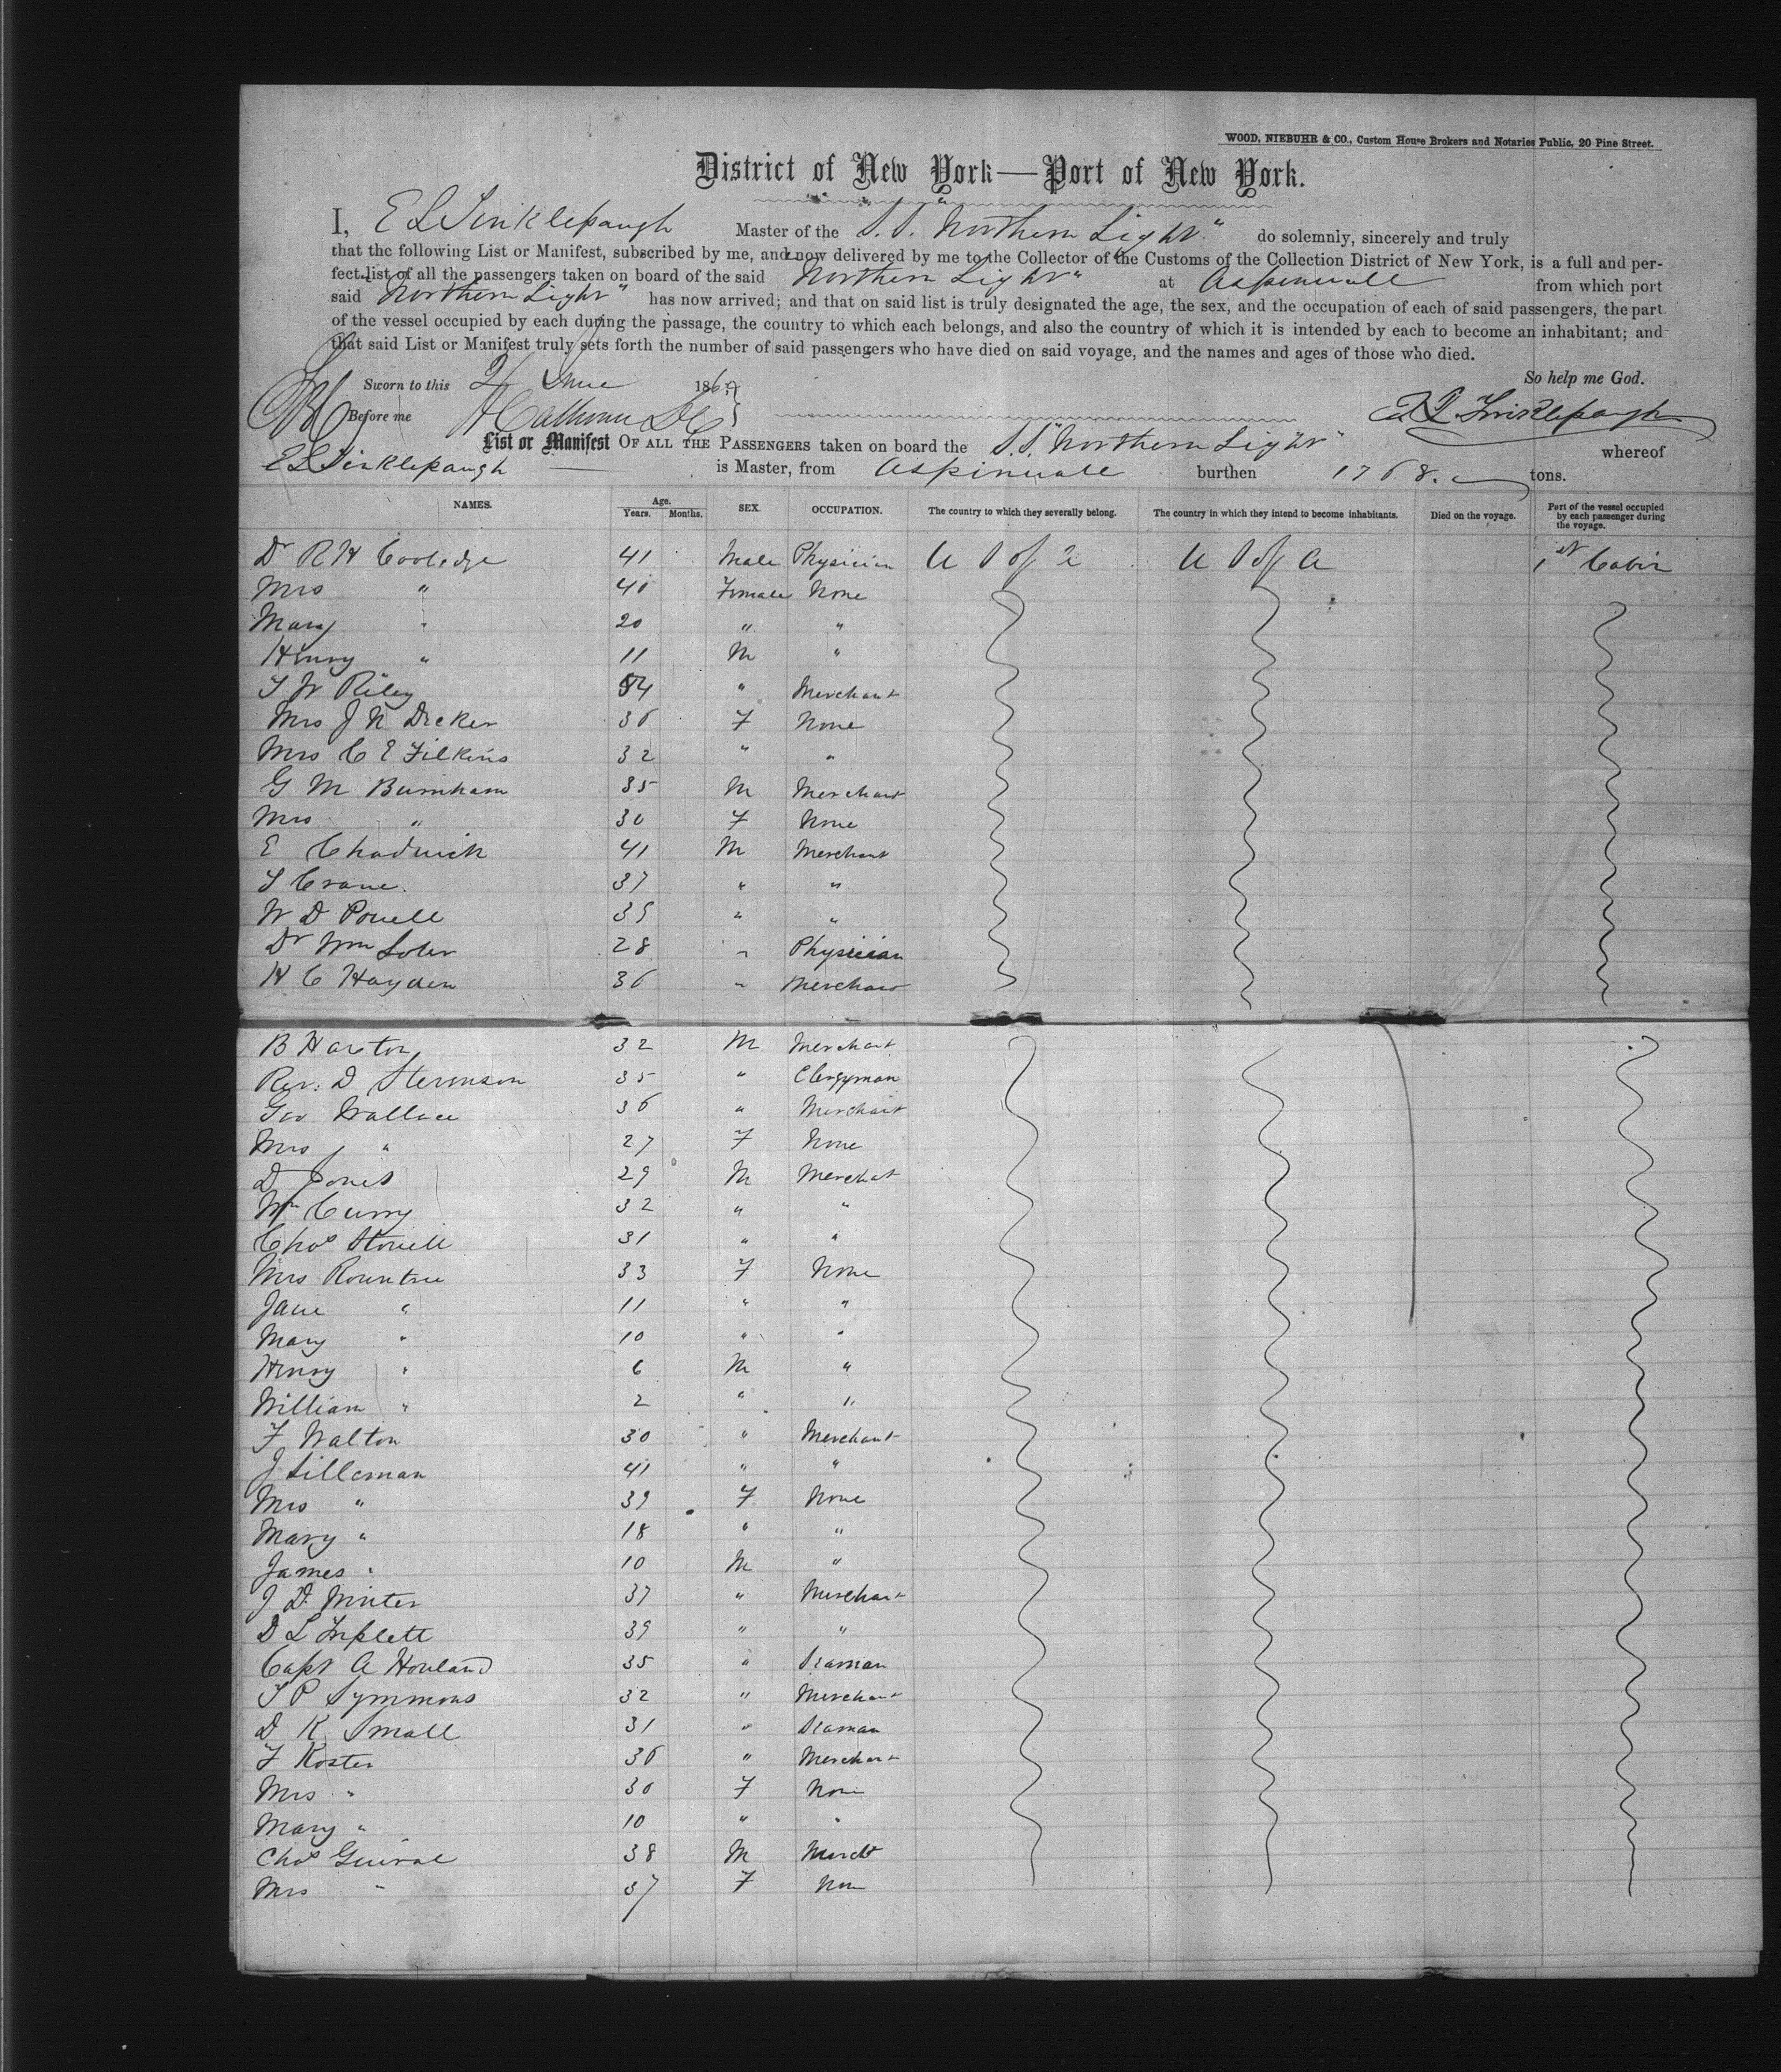 WOOD, NIEBUHR & CO., Custom House Brokers and Notaries Public, 20 Pine Street.
District of New York—Port of New York.
I, E L Tinklepaugh Master of the S.S. "Northern Light" do solemnly, sincerely and truly
that the following List or Manifest, subscribed by me, and now delivered by me to the Collector of the Customs of the Collection District of New York, is a full and per-
fect list of all the passengers taken on board of the said "Northern Light" at Aspinwall from which port
said "Northern Light" has now arrived; and that on said list is truly designated the age, the sex, and the occupation of each of said passengers, the part
of the vessel occupied by each during the passage, the country to which each belongs, and also the country of which it is intended by each to become an inhabitant; and
that said List or Manifest truly sets forth the number of said passengers who have died on said voyage, and the names and ages of those who died.
So help me God.
Sworn to this June 186
Before me Calhoun E L Tinklepaugh
List or Manifest OF ALL THE PASSENGERS taken on board the S.S. "Northern Light" whereof
E L Tinklepaugh is Master, from Aspinwall burthen 1768. tons.
NAMES. Age. Years. Months. SEX. OCCUPATION. The country to which they severally belong. The country in which they intend to become inhabitants. Died on the voyage. Part of the vessel occupied by each passenger during the voyage.
Dr R H Coolidge 41 Male Physician U S of A U S of A 1st Cabin
Mrs " 40 Female None
Mary " 20 " "
Henry " 11 M "
T W Riley 54 " Merchant
Mrs J N Decker 36 F None
Mrs C E Filkins 32 " "
G M Burnham 35 M Merchant
Mrs " 30 F None
E Chadwick 41 M Merchant
S Crane. 37 " "
W D Powell 35 " "
Dr Wm Soler 28 " Physician
H C Hayden 36 " Merchant
B Harston 32 M Merchant
Rev. D Stevenson 35 " Clergyman
Geo Wallace 36 " Merchant
Mrs " 27 F None
D Jones 29 M Merchat
Wm Curry 32 " "
Chas Stowell 31 " "
Mrs Rowntree 33 F None
Jane " 11 " "
Mary " 10 " "
Henry " 6 M "
William " 2 " "
F Walton 30 " Merchant
J Silleman 41 " "
Mrs " 39 F None
Mary " 18 " "
James " 10 M "
J D. Minter 37 " Merchant
D L Triplett 39 " "
Capt A Howland 35 " Seaman
T P Symmons 32 " Merchant
D K Small 31 " Seaman
F Koster 36 " Merchant
Mrs " 30 F None
Mary " 10 " "
Chas 38 M Marcht
Mrs " 37 F Non